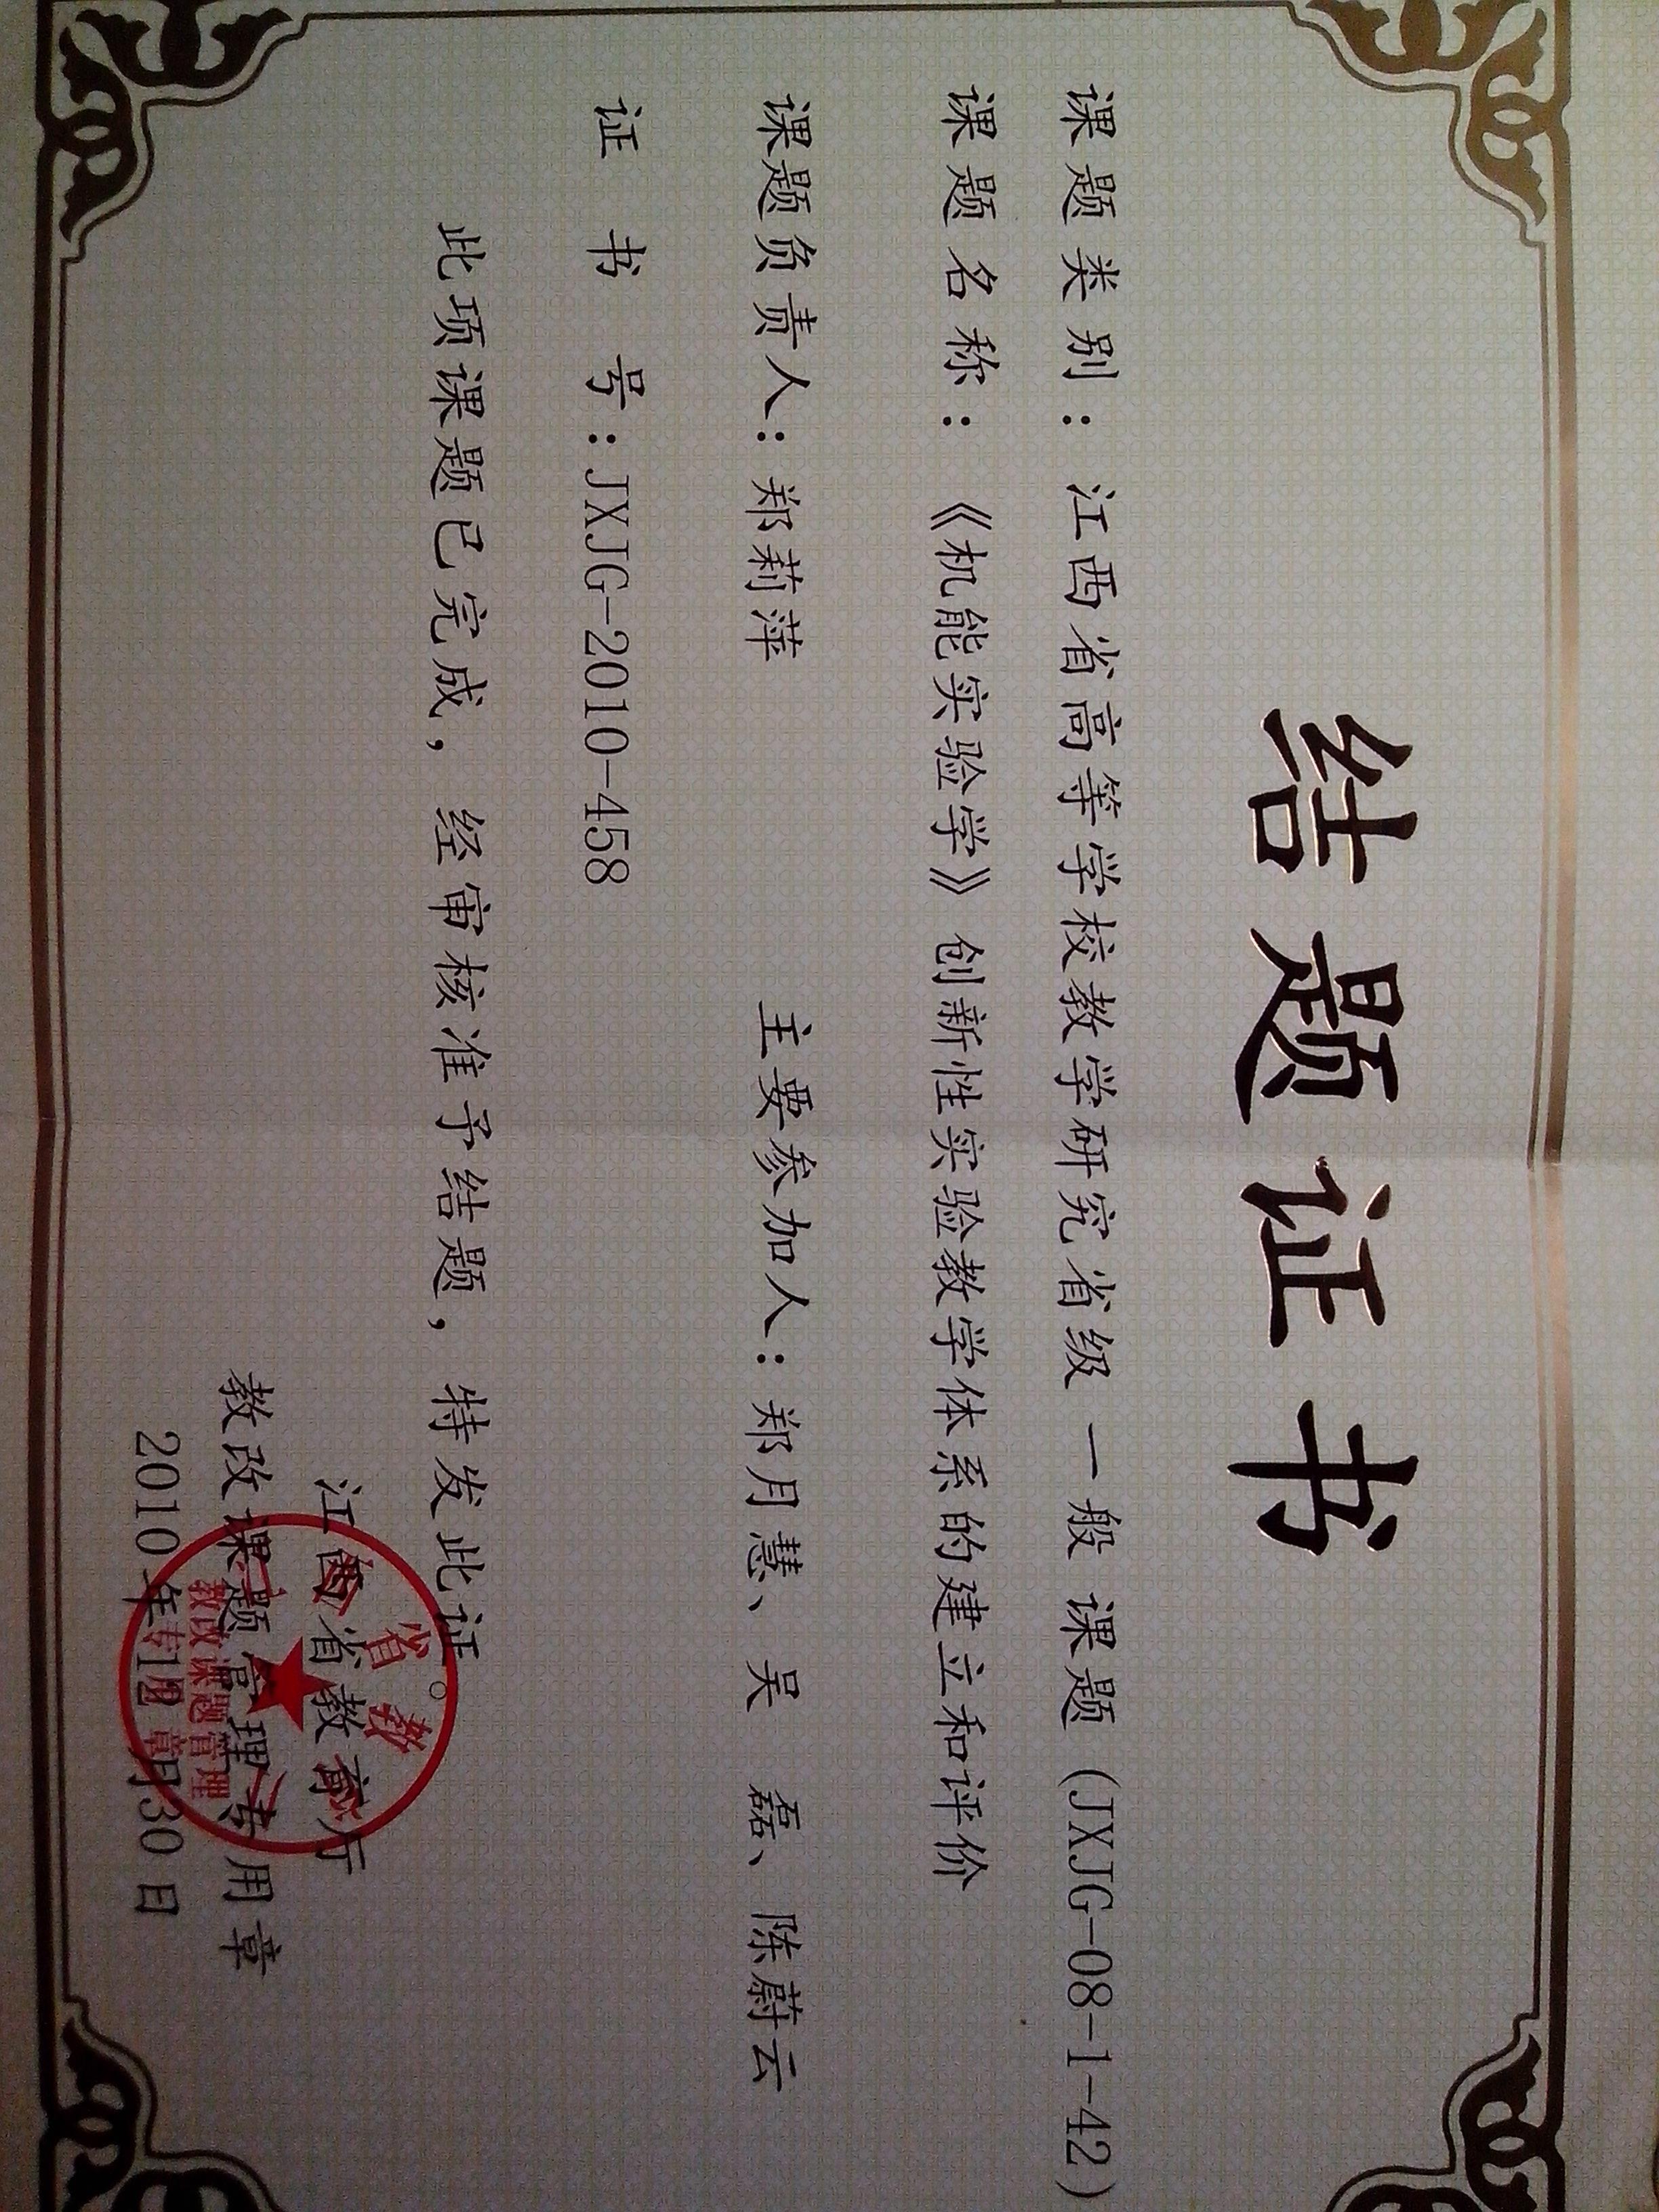 结题证书
课题类别：江西省高等学校教学研究省级 一般 课题（JXJG-08-1-42）
课题名称：《机能实验学》创新性实验教学体系的建立和评价
课题负责人：郑莉萍 主要参加人：郑月慧、吴 磊、陈蔚云
证 书 号：JXJG-2010-458
此项课题已完成，经审核准予结题，特发此证。
江西省教育厅
教改课题管理专用章
2010年12月30日
省教
教改课题管理
专用章